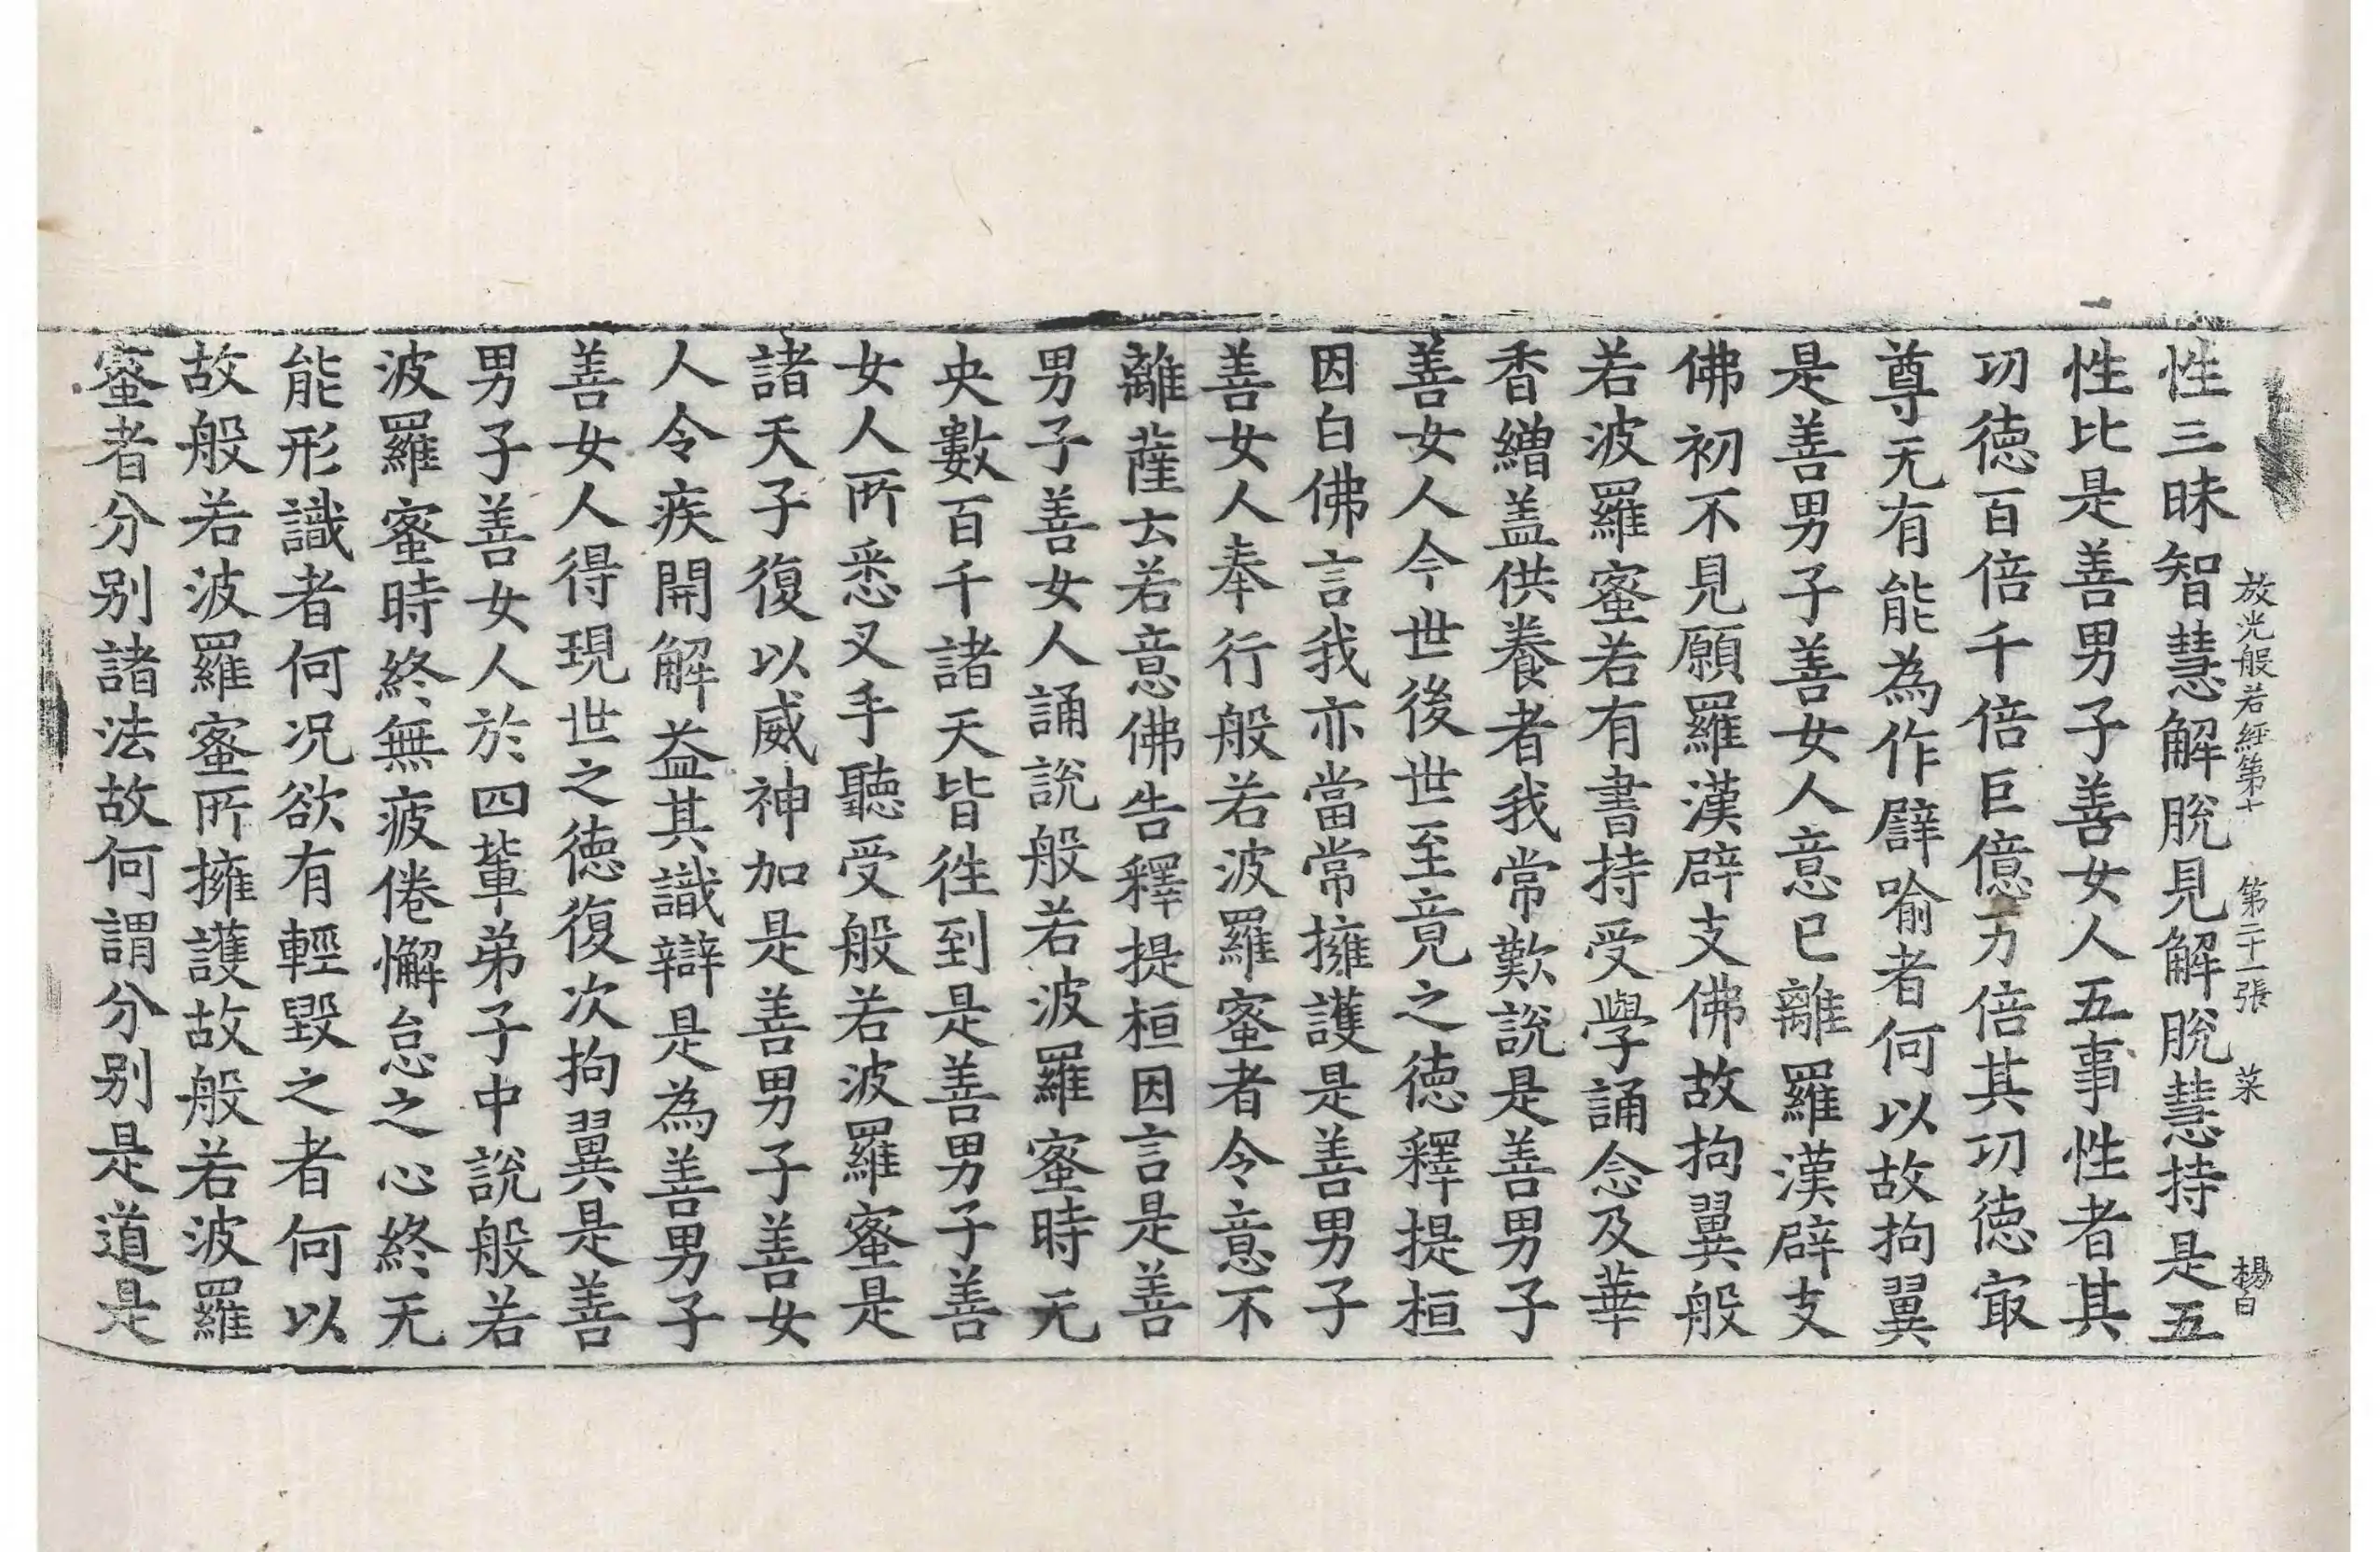 放光般若經第十　第二十一張　菜　楊白
性三昧智慧解脫見解脫慧持是五
性比是善男子善女人五事性者其
㓛德百倍千倍巨億万倍其㓛德㝡
尊无有能為作譬喻者何以故拘翼
是善男子善女人意已離羅漢辟支
佛初不見願羅漢辟支佛故拘翼般
若波羅蜜若有書持受學誦念及華
香繒盖供養者我常歎說是善男子
善女人今世後世至竟之德釋提桓
因白佛言我亦當常擁護是善男子
善女人奉行般若波羅蜜者令意不
離薩云若意佛告釋提桓因言是善
男子善女人誦說般若波羅蜜時无
央數百千諸天皆徃到是善男子善
女人所悉叉手聽受般若波羅蜜是
諸天子復以威神加是善男子善女
人令疾開解益其識辯是為善男子
善女人得現世之德復次拘翼是善
男子善女人於四輩弟子中說般若
波羅蜜時終無疲倦懈怠之心終无
能形識者何况欲有輕毀之者何以
故般若波羅蜜所擁護故般若波羅
蜜者分別諸法故何謂分別是道是